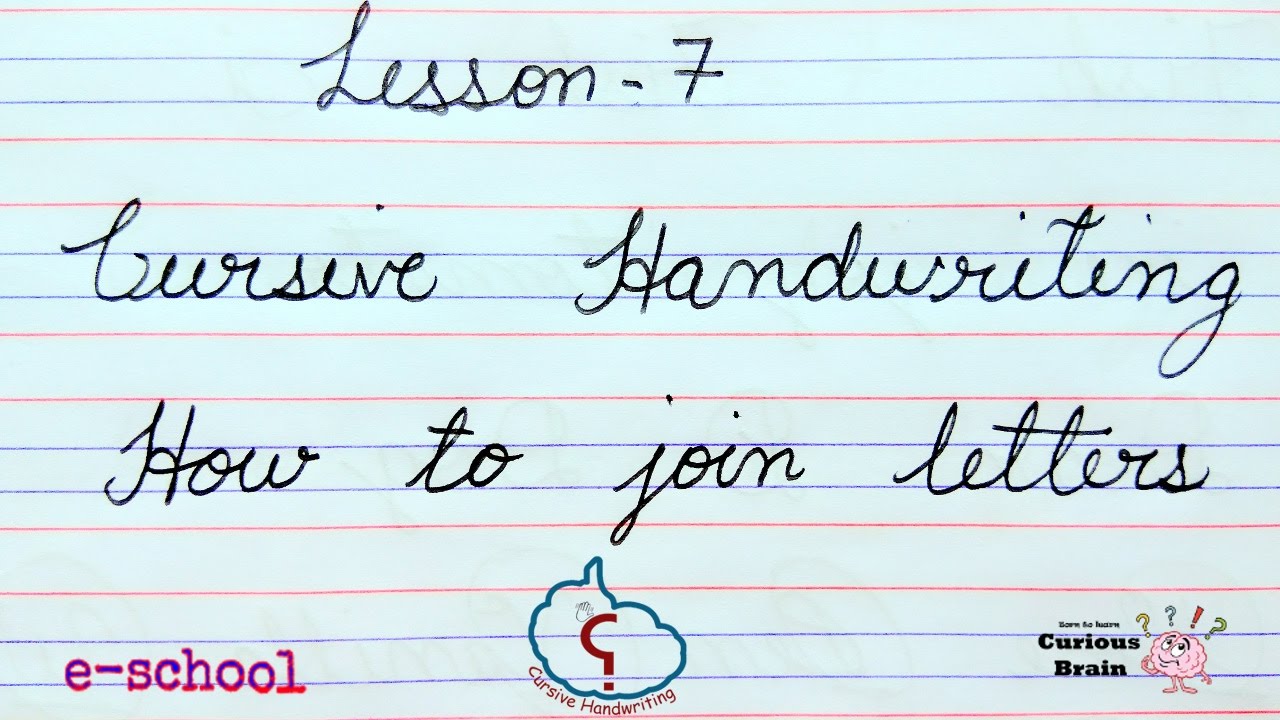 Lesson - 7
Cursive Handwriting
How to join letters
e-school
Cursive Handwriting
Born to learn
Curious
Brain